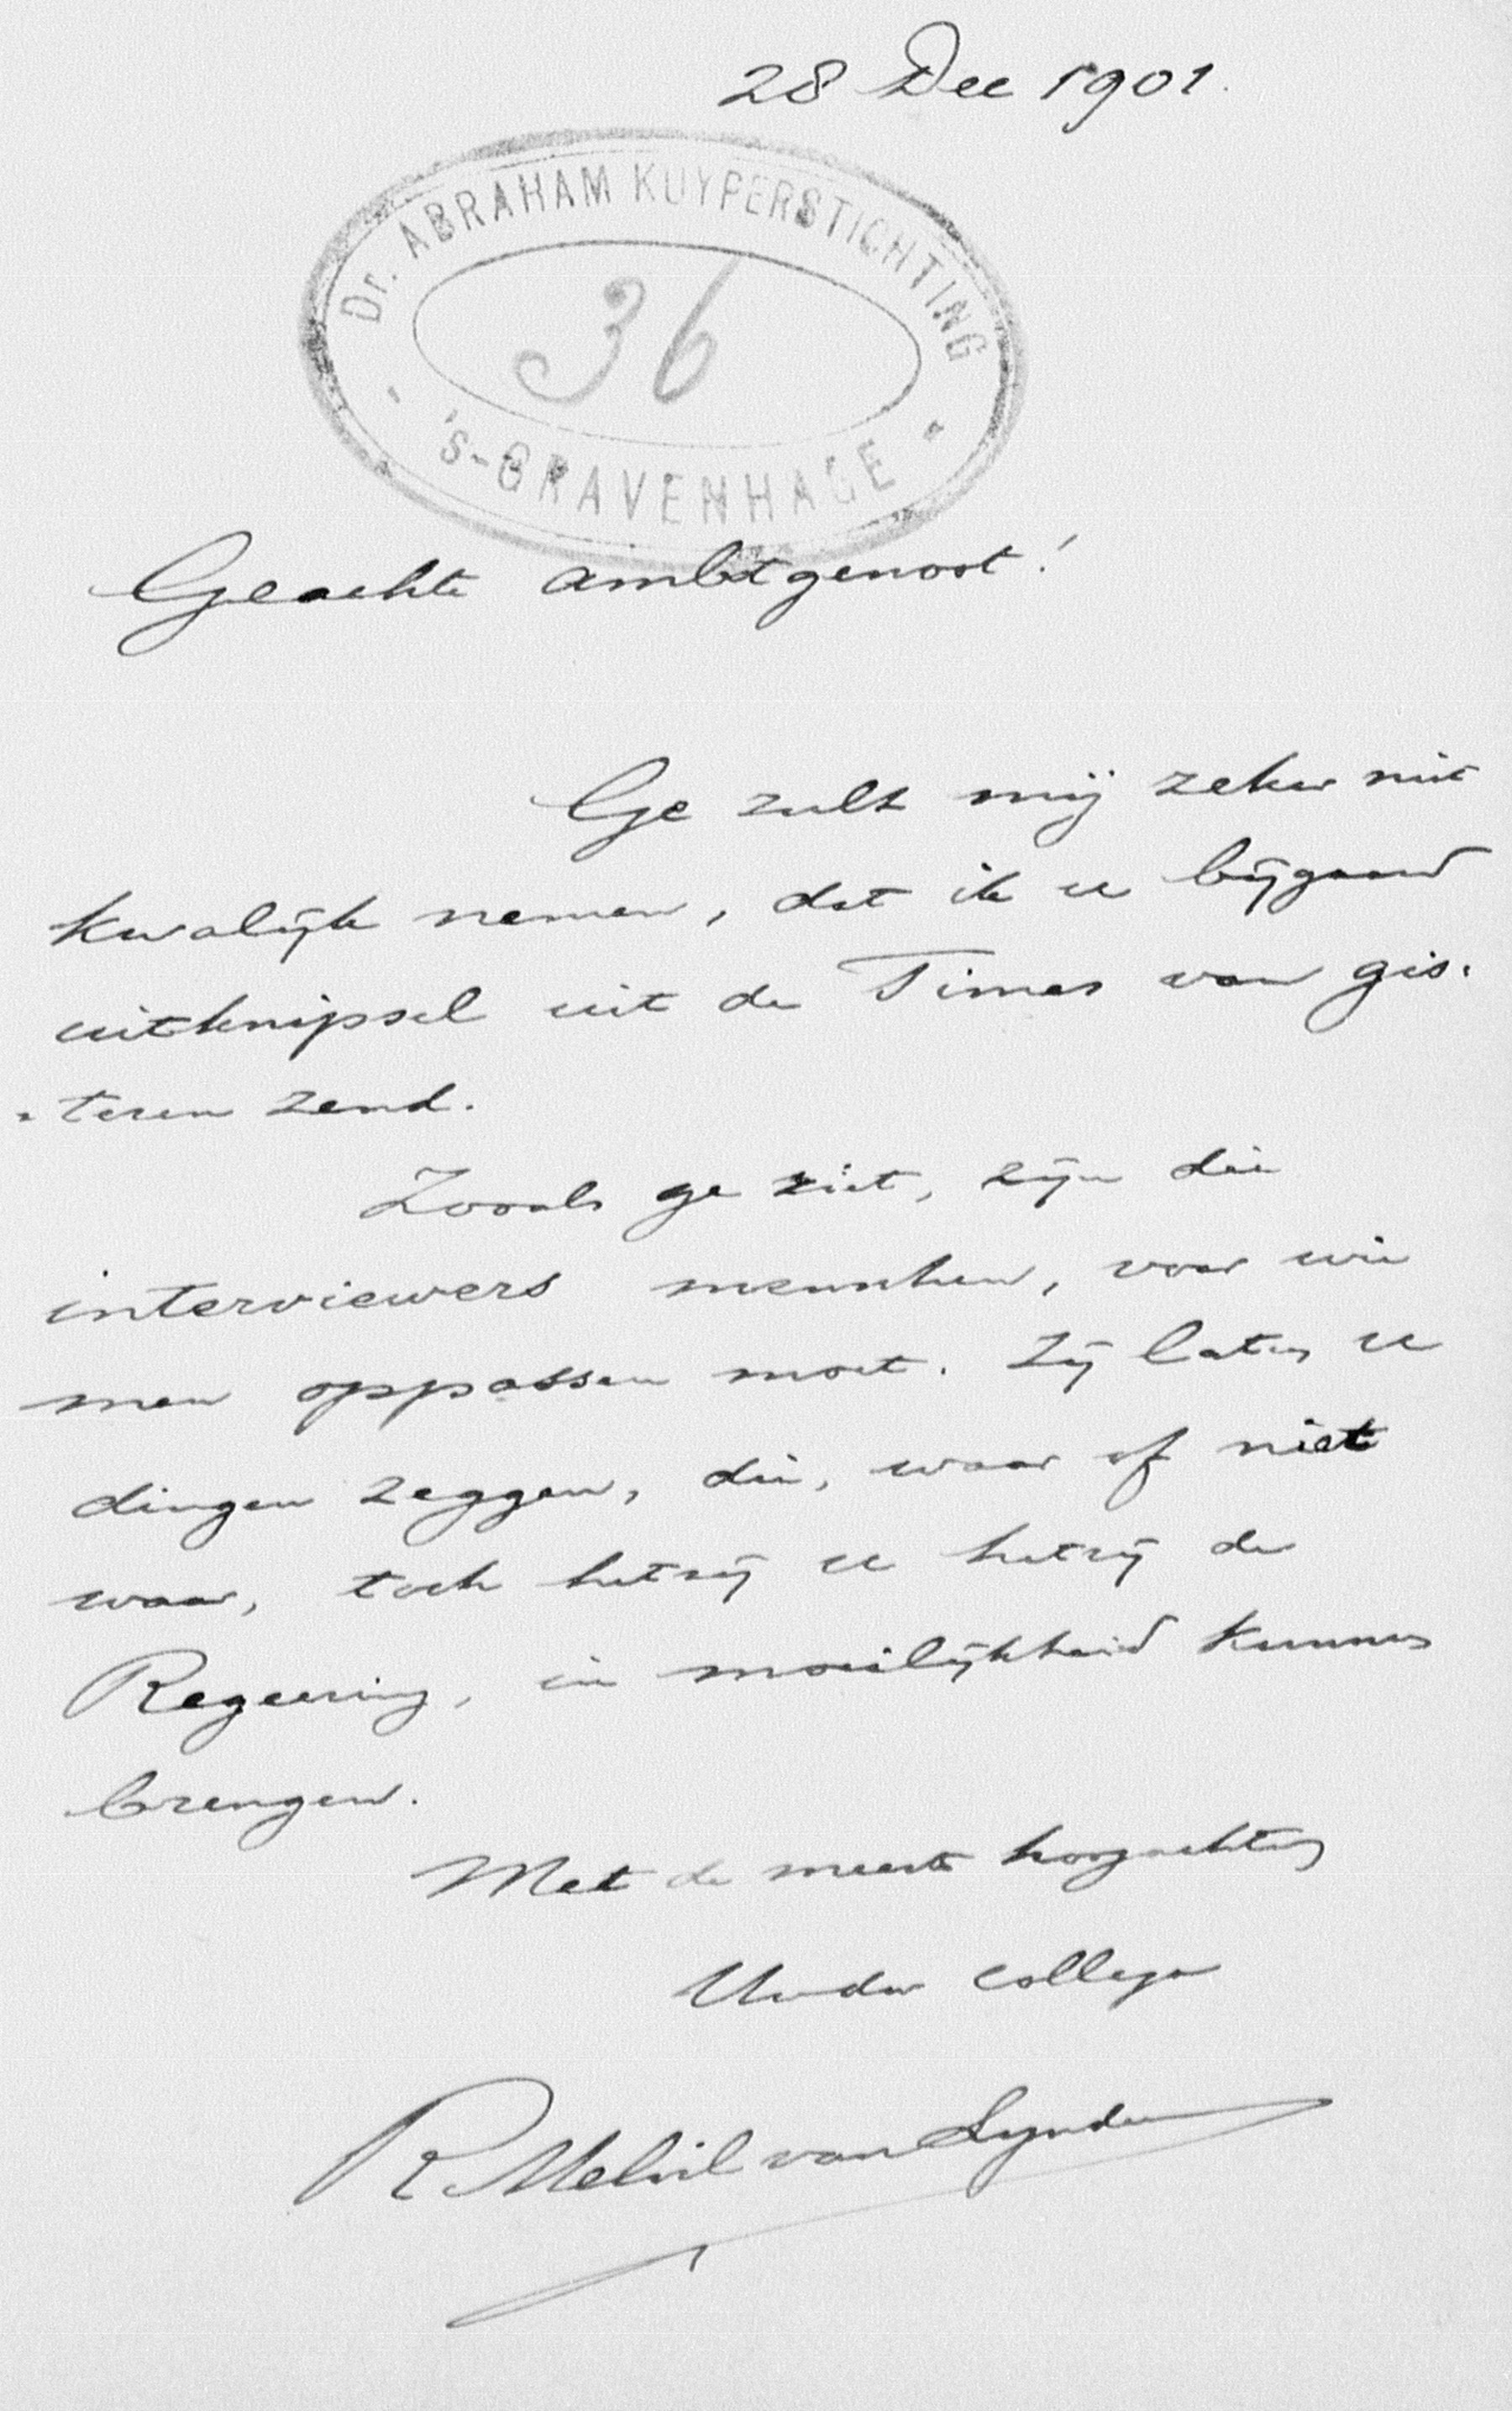 28 Dec 1901.
Dr. ABRAHAM KUYPERSTICHTING
36
'S-GRAVENHAGE
Geachte ambtgenoot!
Ge zult mij zeker niet
kwalijk nemen, dat ik u bijgaand
uitknipsel uit de Times van gis-
=teren zend.
Zooals ge ziet, zijn die
interviewers menschen, voor wie
men oppassen moet. Zij laten u
dingen zeggen, die, waar of niet
waar, toch hetzij u hetzij de
Regeering, in moeilijkheid kunnen
brengen.
Met de meeste hoogachting
Uwdw collega
R Melvil van Lynden